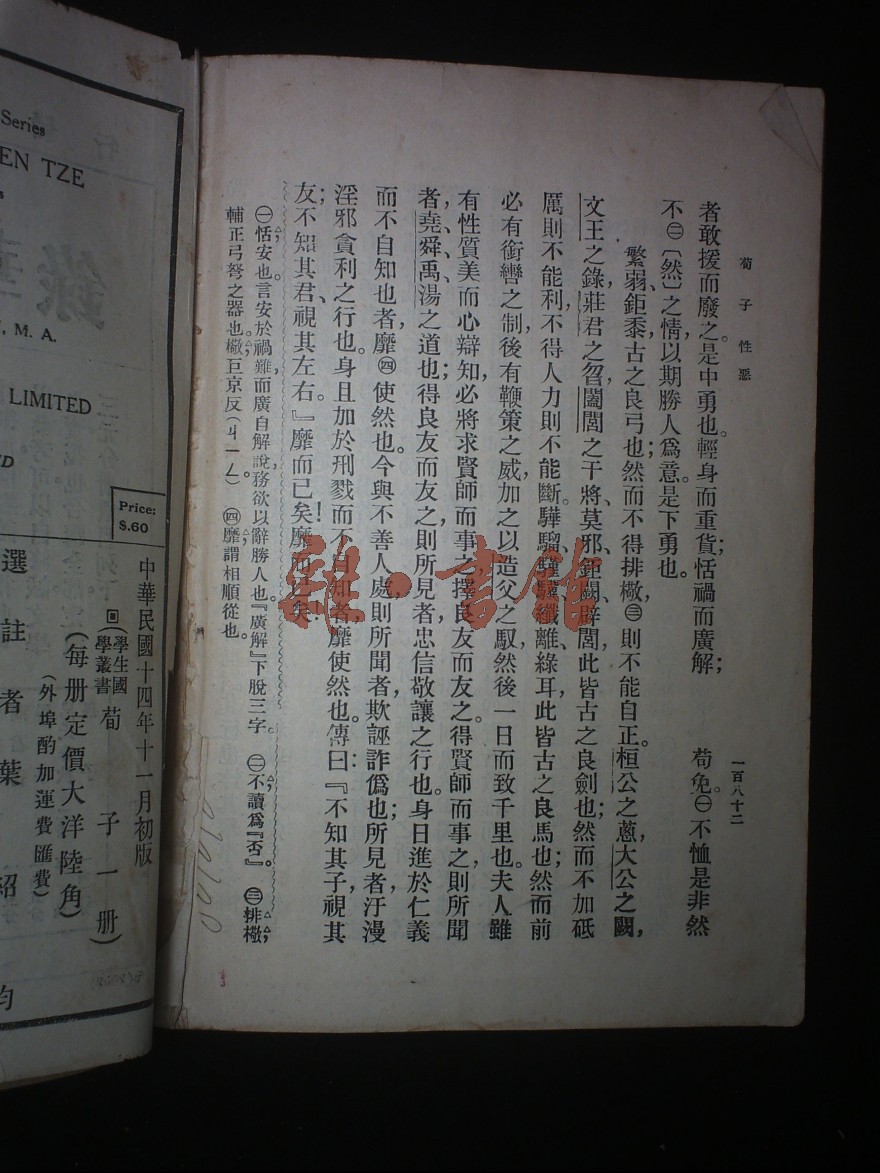 荀子 性惡
一百八十二
者敢援而廢之。是中勇也。輕身而重貨,恬禍而廣解;苟免。㊀不恤是非然
不㊁〔然〕之情,以期勝人爲意。是下勇也。
繁弱、鉅黍,古之良弓也;然而不得排檠,㊂則不能自正。桓公之蔥,大公之闕,
文王之錄,莊君之曶,闔閭之干將、莫邪、鉅闕、辟閭,此皆古之良劍也;然而不加砥
厲則不能利,不得人力則不能斷。驊騮、騹驥、纖離、綠耳,此皆古之良馬也;然而前
必有銜轡之制,後有鞭策之威,加之以造父之馭,然後一日而致千里也。夫人雖
有性質美而心辯知,必將求賢師而事之,擇良友而友之。得賢師而事之,則所聞
者,堯、舜、禹、湯之道也;得良友而友之,則所見者忠信敬讓之行也。身日進於仁義
而不自知也者,靡㊃使然也。今與不善人處,則所聞者欺誣詐僞也;所見者汙漫
淫邪貪利之行也。身且加於刑戮而不自知者,靡使然也。傳曰:『不知其子,視其
友;不知其君,視其左右。』靡而已矣!靡而已矣!
㊀恬,安也。言安於禍難而廣自解說,務欲以辭勝人也。『廣解』下脫三字。 ㊁不,讀爲『否』。 ㊂排檠,
輔正弓弩之器也。檠,巨京反(ㄐㄧㄥ)。 ㊃靡,謂相順從也。
Series
EN TZE
M. A.
LIMITED
Price:
$.60
中華民國十四年十一月初版
學生國
學叢書
荀子一册
(每册定價大洋陸角)
(外埠酌加運費匯費)
選註者葉紹鈞